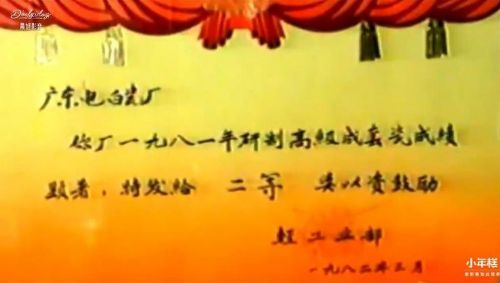 广东电白瓷厂
你厂一九八一年研制高級成套瓷成績
显著，特发给 二等 奖以资鼓励
轻工业部
一九八二年三月
小年糕